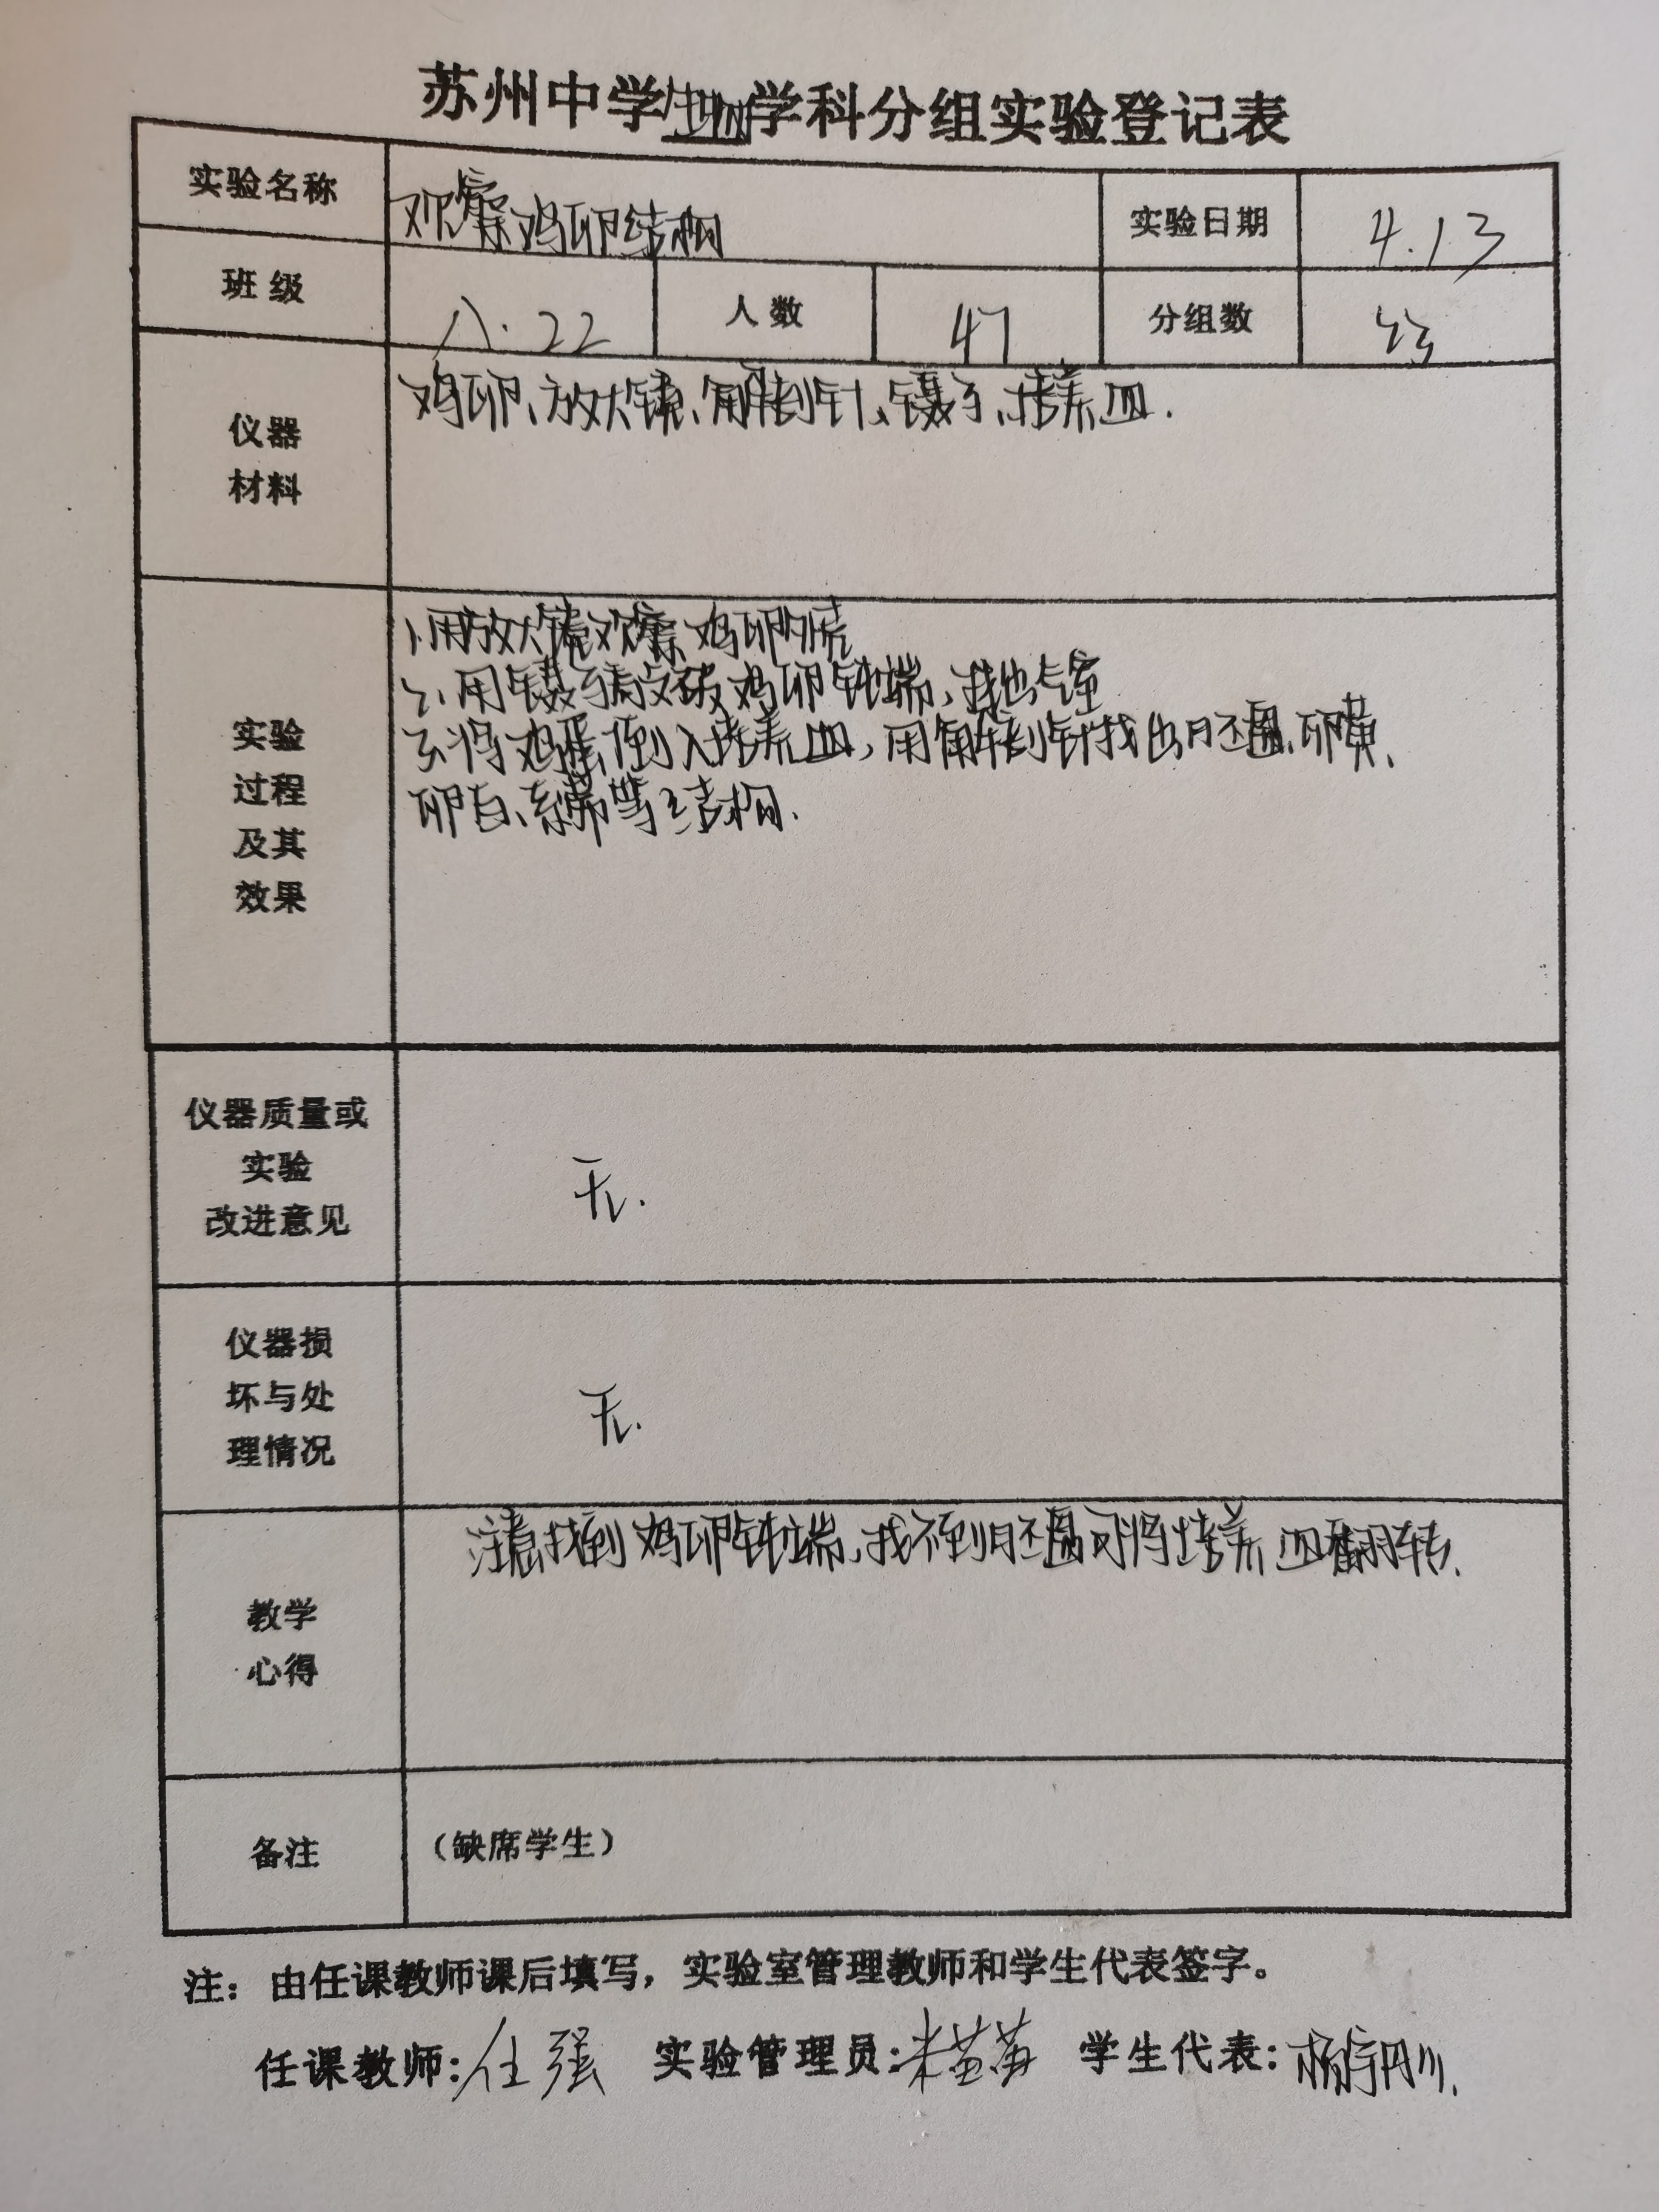 苏州中学生物学科分组实验登记表
实验名称 观察鸡卵结构 实验日期 4.13
班级 八.22 人数 47 分组数 23
仪器
材料
鸡卵、放大镜、解剖针、镊子、培养皿.
实验
过程
及其
效果
1.用放大镜观察鸡卵外壳
2.用镊子敲破鸡卵钝端,找出气室
3.将鸡蛋倒入培养皿,用解剖针找出胚盘、卵黄、
卵白、系带等结构.
仪器质量或
实验
改进意见
无.
仪器损
坏与处
理情况
无.
教学
心得
注意找到鸡卵钝端,找不到胚盘可将培养皿翻转.
备注 (缺席学生)
注:由任课教师课后填写,实验室管理教师和学生代表签字。
任课教师:任强 实验管理员: 学生代表: